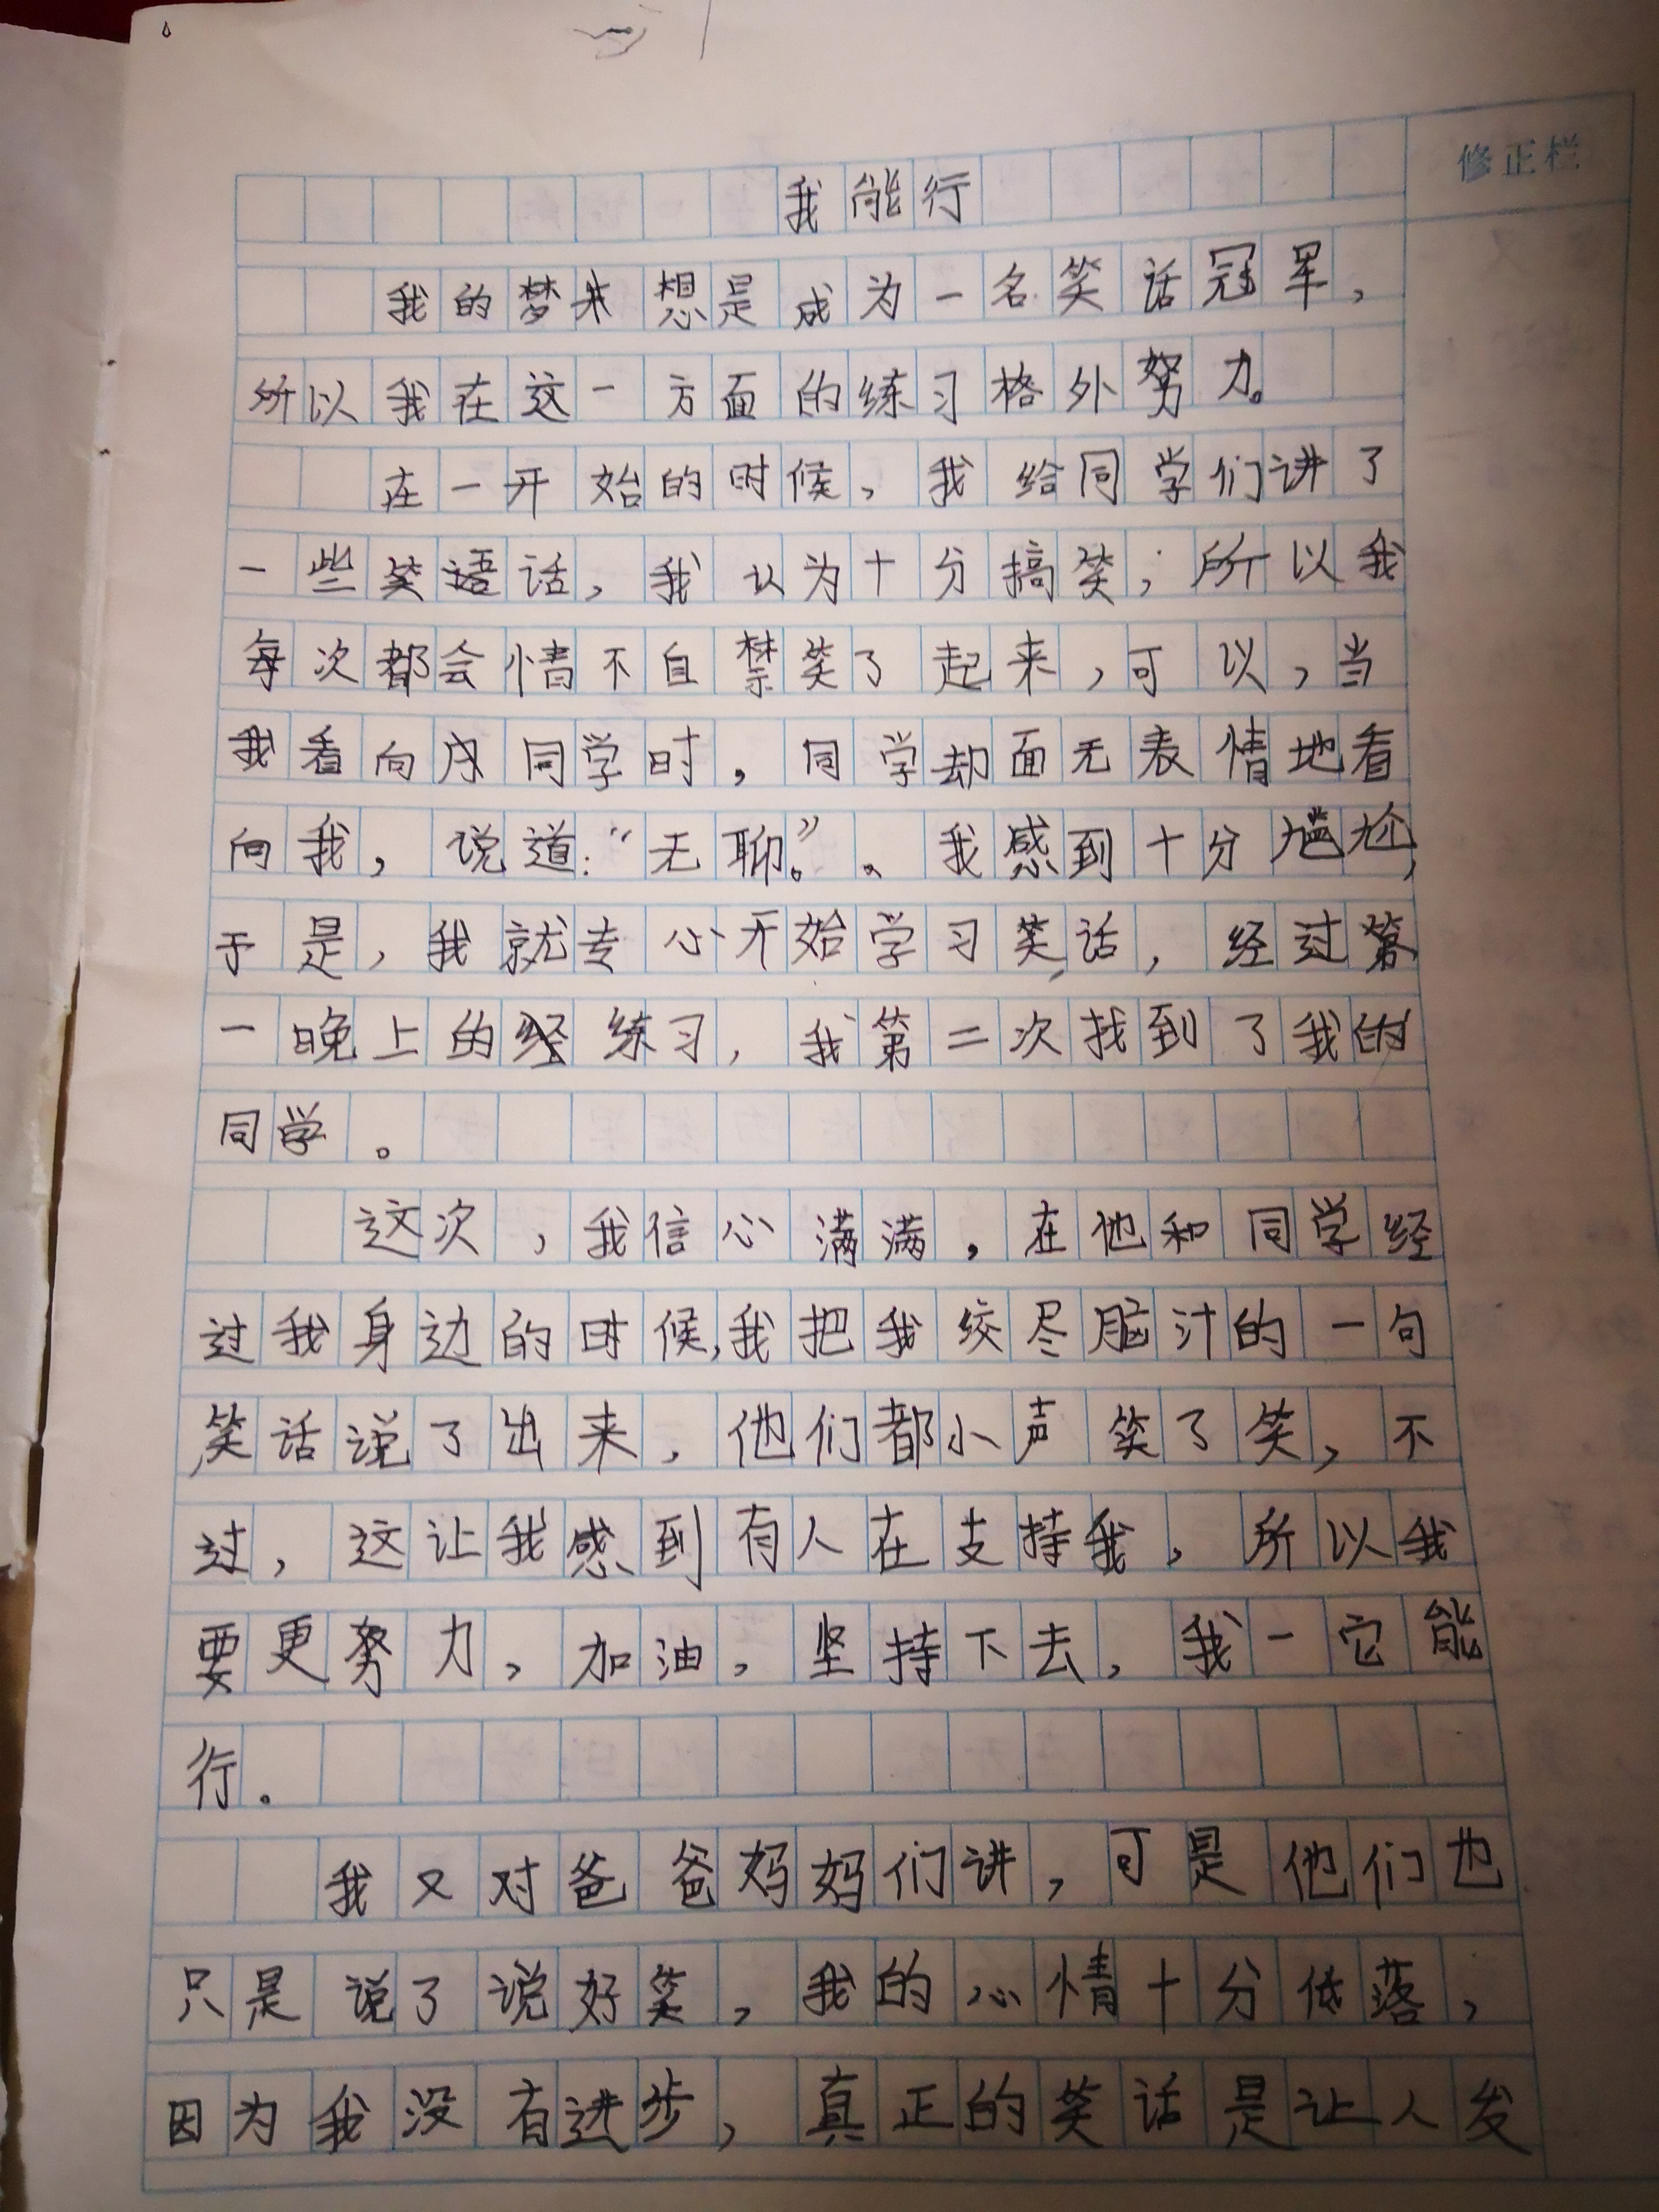 修正栏
我能行
我的梦想是成为一名笑话冠军，
所以我在这一方面的练习格外努力。
在一开始的时候，我给同学们讲了
一些笑话，我认为十分搞笑，所以我
每次都会情不自禁笑了起来，可以，当
我看向同学时，同学却面无表情地看
向我，说道：“无聊。”。我感到十分尴尬，
于是，我就专心开始学习笑话，经过
一晚上的练习，我第二次找到了我的
同学。
这次，我信心满满，在他和同学经
过我身边的时候，我把我绞尽脑汁的一句
笑话说了出来，他们都小声笑了笑，不
过，这让我感到有人在支持我，所以我
要更努力，加油，坚持下去，我一它能
行。
我又对爸爸妈妈们讲，可是他们也
只是说了说好笑，我的心情十分低落，
因为我没有进步，真正的笑话是让人发